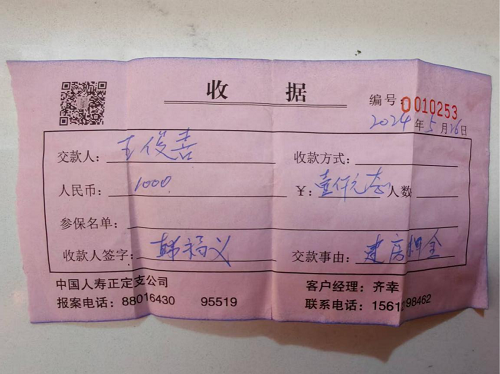 收 据
编号 0010253
2024年5月26日
交款人：王俊喜 收款方式：
人民币：1000 ¥：壹仟元整 人数
参保名单：
收款人签字：韩福义 交款事由：建房押金
中国人寿正定支公司 客户经理：齐幸
报案电话：88016430 95519 联系电话：1561 98462